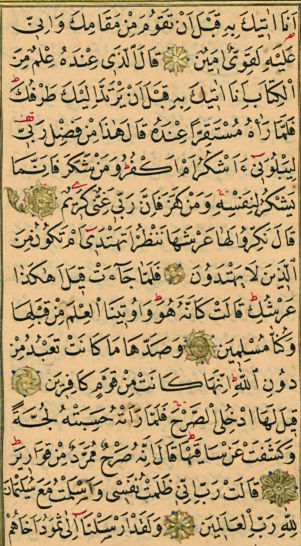 اَنَا۬ اٰتٖيكَ بِهٖ قَبْلَ اَنْ تَقُومَ مِنْ مَقَامِكَ وَاِنّٖى
عَلَيْهِ لَقَوِىٌّ اَمٖينٌ قَالَ الَّذٖى عِنْدَهُ عِلْمٌ مِنَ
الْكِتَابِ اَنَا۬ اٰتٖيكَ بِهٖ قَبْلَ اَنْ يَرْتَدَّ اِلَيْكَ طَرْفُكَ
فَلَمَّا رَاٰهُ مُسْتَقِرًّا عِنْدَهُ قَالَ هٰذَا مِنْ فَضْلِ رَبّٖى
لِيَبْلُوَنٖى ءَاَشْكُرُ اَمْ اَكْفُرُ وَمَنْ شَكَرَ فَاِنَّمَا
يَشْكُرُ لِنَفْسِهٖ وَمَنْ كَفَرَ فَاِنَّ رَبّٖى غَنِىٌّ كَرٖيمٌ
قَالَ نَكِّرُوا لَهَا عَرْشَهَا نَنْظُرْ اَتَهْتَدٖى اَمْ تَكُونُ مِنَ
الَّذٖينَ لَا يَهْتَدُونَ فَلَمَّا جَاءَتْ قٖيلَ اَهٰكَذَا
عَرْشُكِ قَالَتْ كَاَنَّهُ هُوَ وَاُوتٖينَا الْعِلْمَ مِنْ قَبْلِهَا
وَكُنَّا مُسْلِمٖينَ وَصَدَّهَا مَا كَانَتْ تَعْبُدُ مِنْ
دُونِ اللّٰهِ اِنَّهَا كَانَتْ مِنْ قَوْمٍ كَافِرٖينَ
قٖيلَ لَهَا ادْخُلِى الصَّرْحَ فَلَمَّا رَاَتْهُ حَسِبَتْهُ لُجَّةً
وَكَشَفَتْ عَنْ سَاقَيْهَا قَالَ اِنَّهُ صَرْحٌ مُمَرَّدٌ مِنْ قَوَارٖيرَ
قَالَتْ رَبِّ اِنّٖى ظَلَمْتُ نَفْسٖى وَاَسْلَمْتُ مَعَ سُلَيْمٰنَ
لِلّٰهِ رَبِّ الْعَالَمٖينَ وَلَقَدْ اَرْسَلْنَا اِلٰى ثَمُودَ اَخَاهُمْ